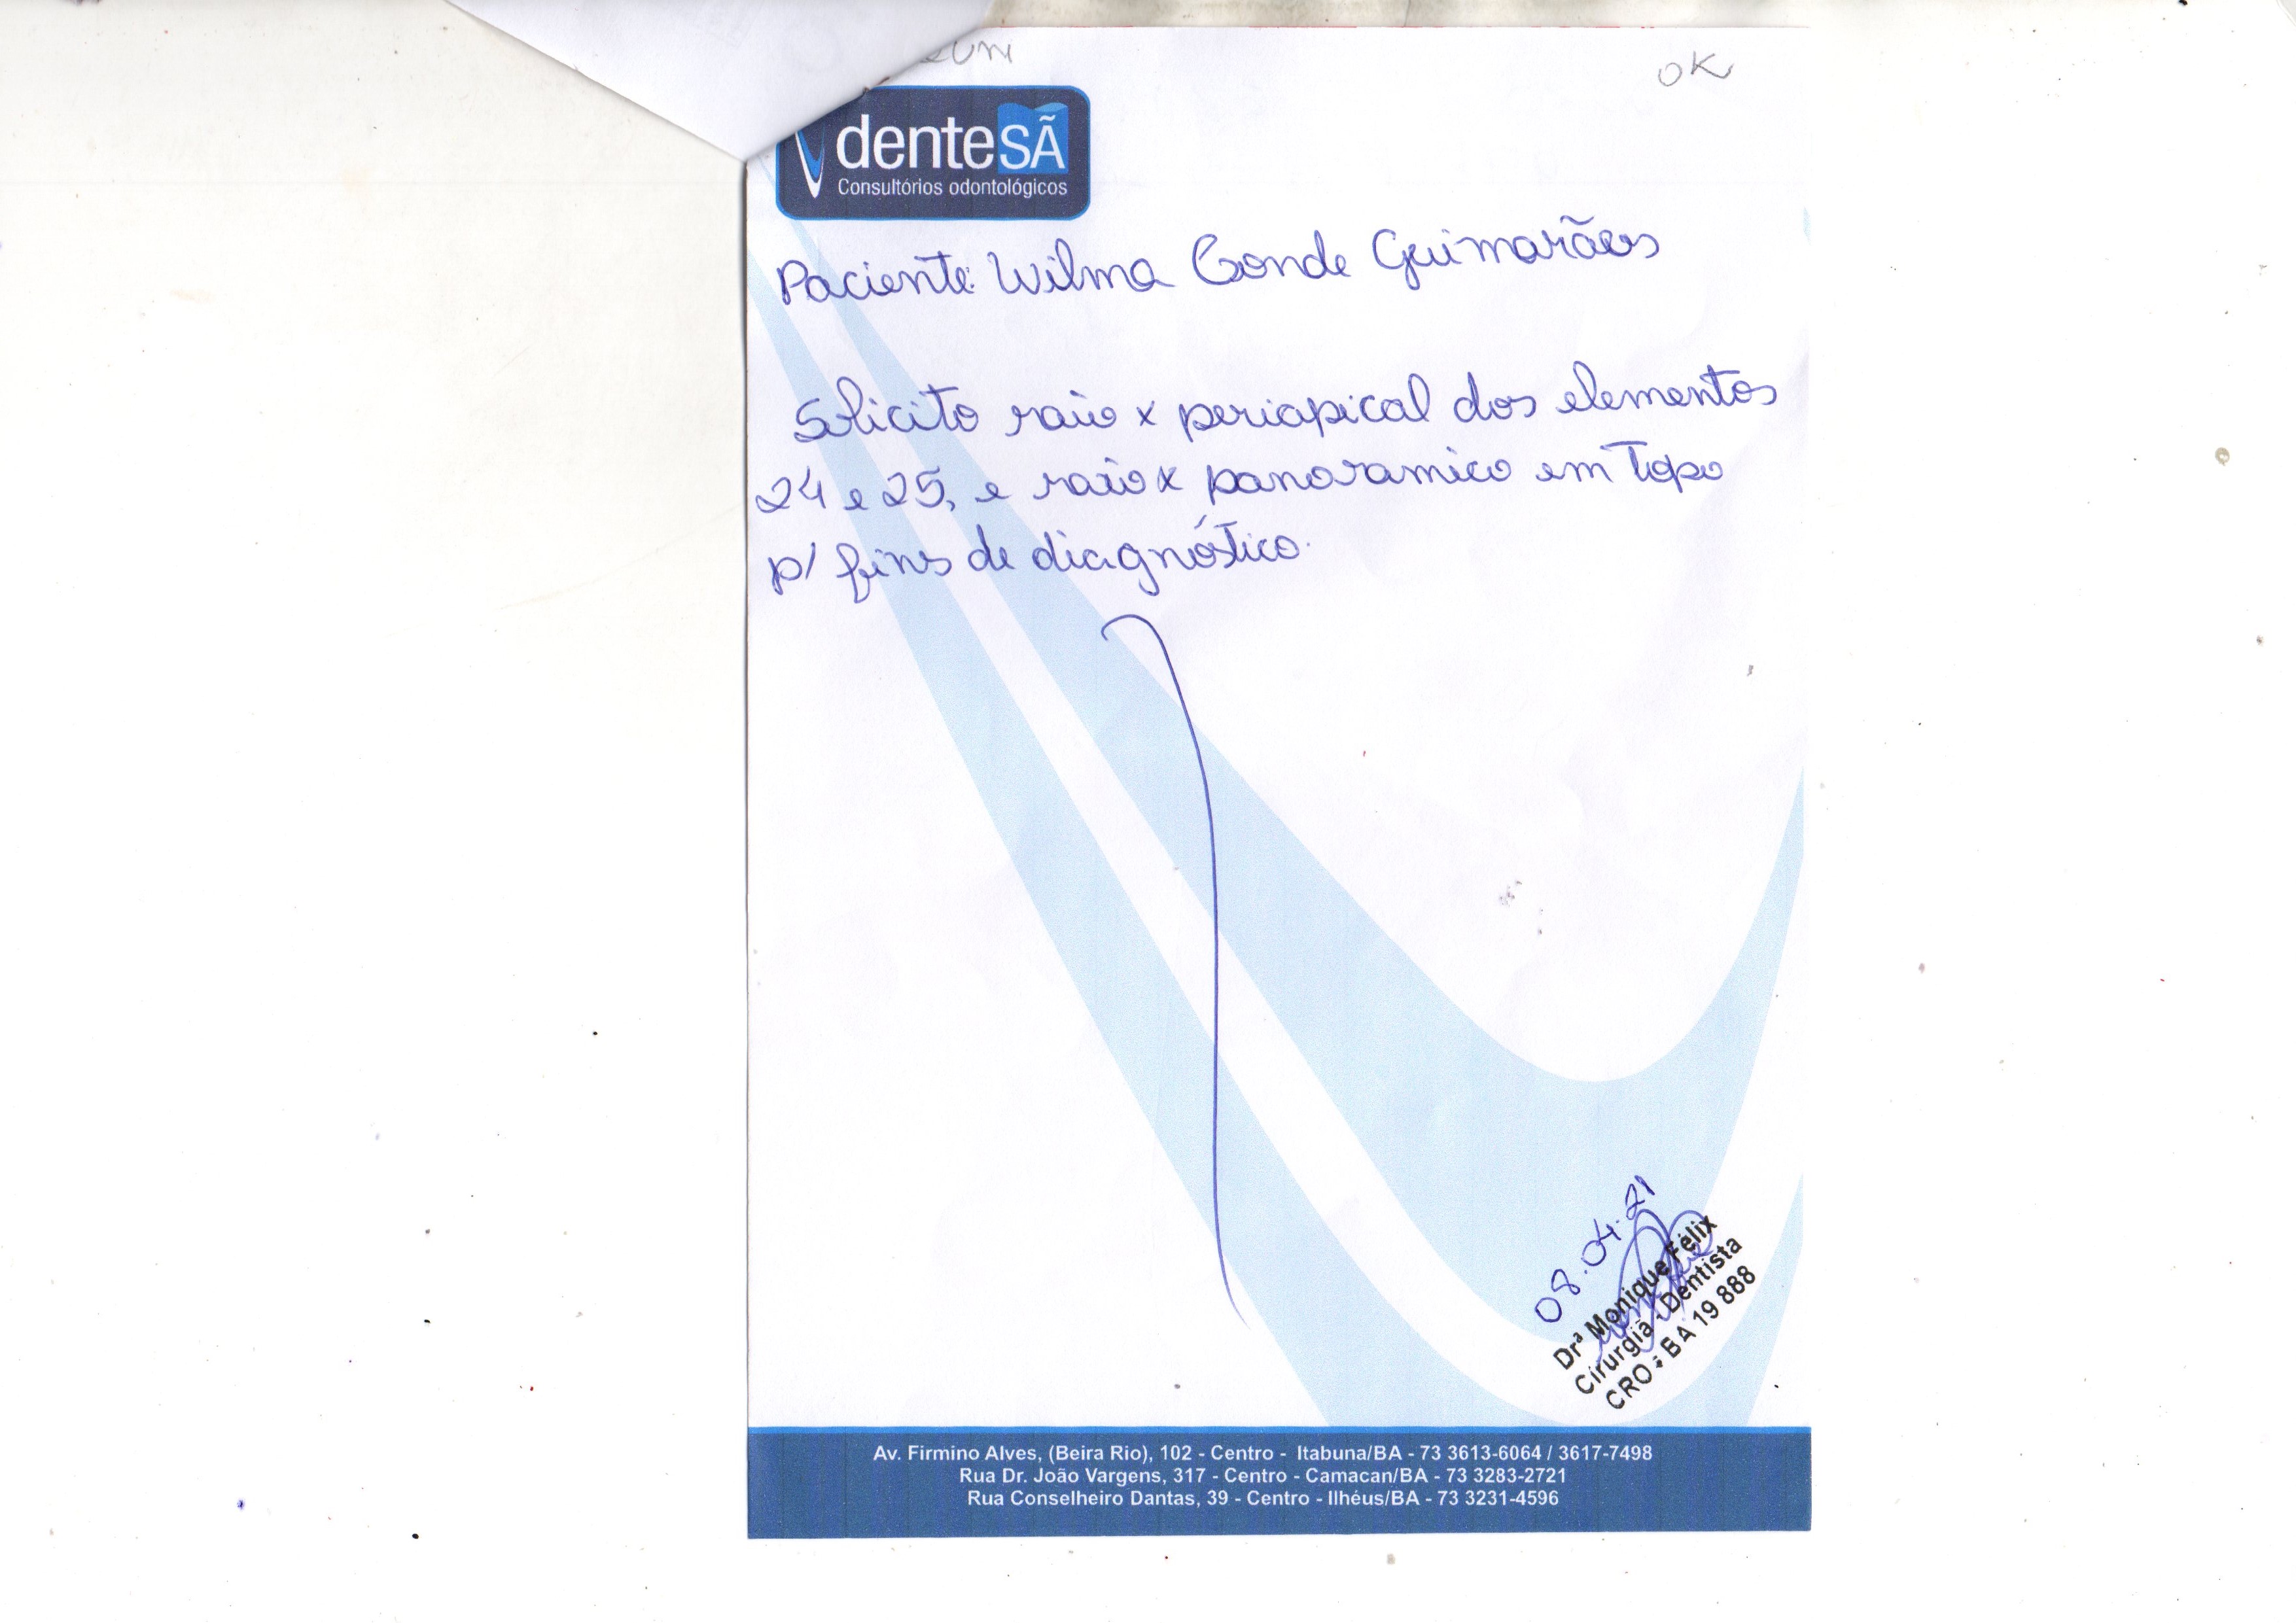 OK
denteSÃ
Consultórios odontológicos
Paciente: Wilma Conde Guimarães
Solicito raio x periapical dos elementos
24 e 25, e raio x panoramico em Topo
p/ fins de diagnóstico.
08.04.21
Drª Monique Félix
Cirurgiã - Dentista
CRO - BA 19 888
Av. Firmino Alves, (Beira Rio), 102 - Centro - Itabuna/BA - 73 3613-6064 / 3617-7498
Rua Dr. João Vargens, 317 - Centro - Camacan/BA - 73 3283-2721
Rua Conselheiro Dantas, 39 - Centro - Ilhéus/BA - 73 3231-4596